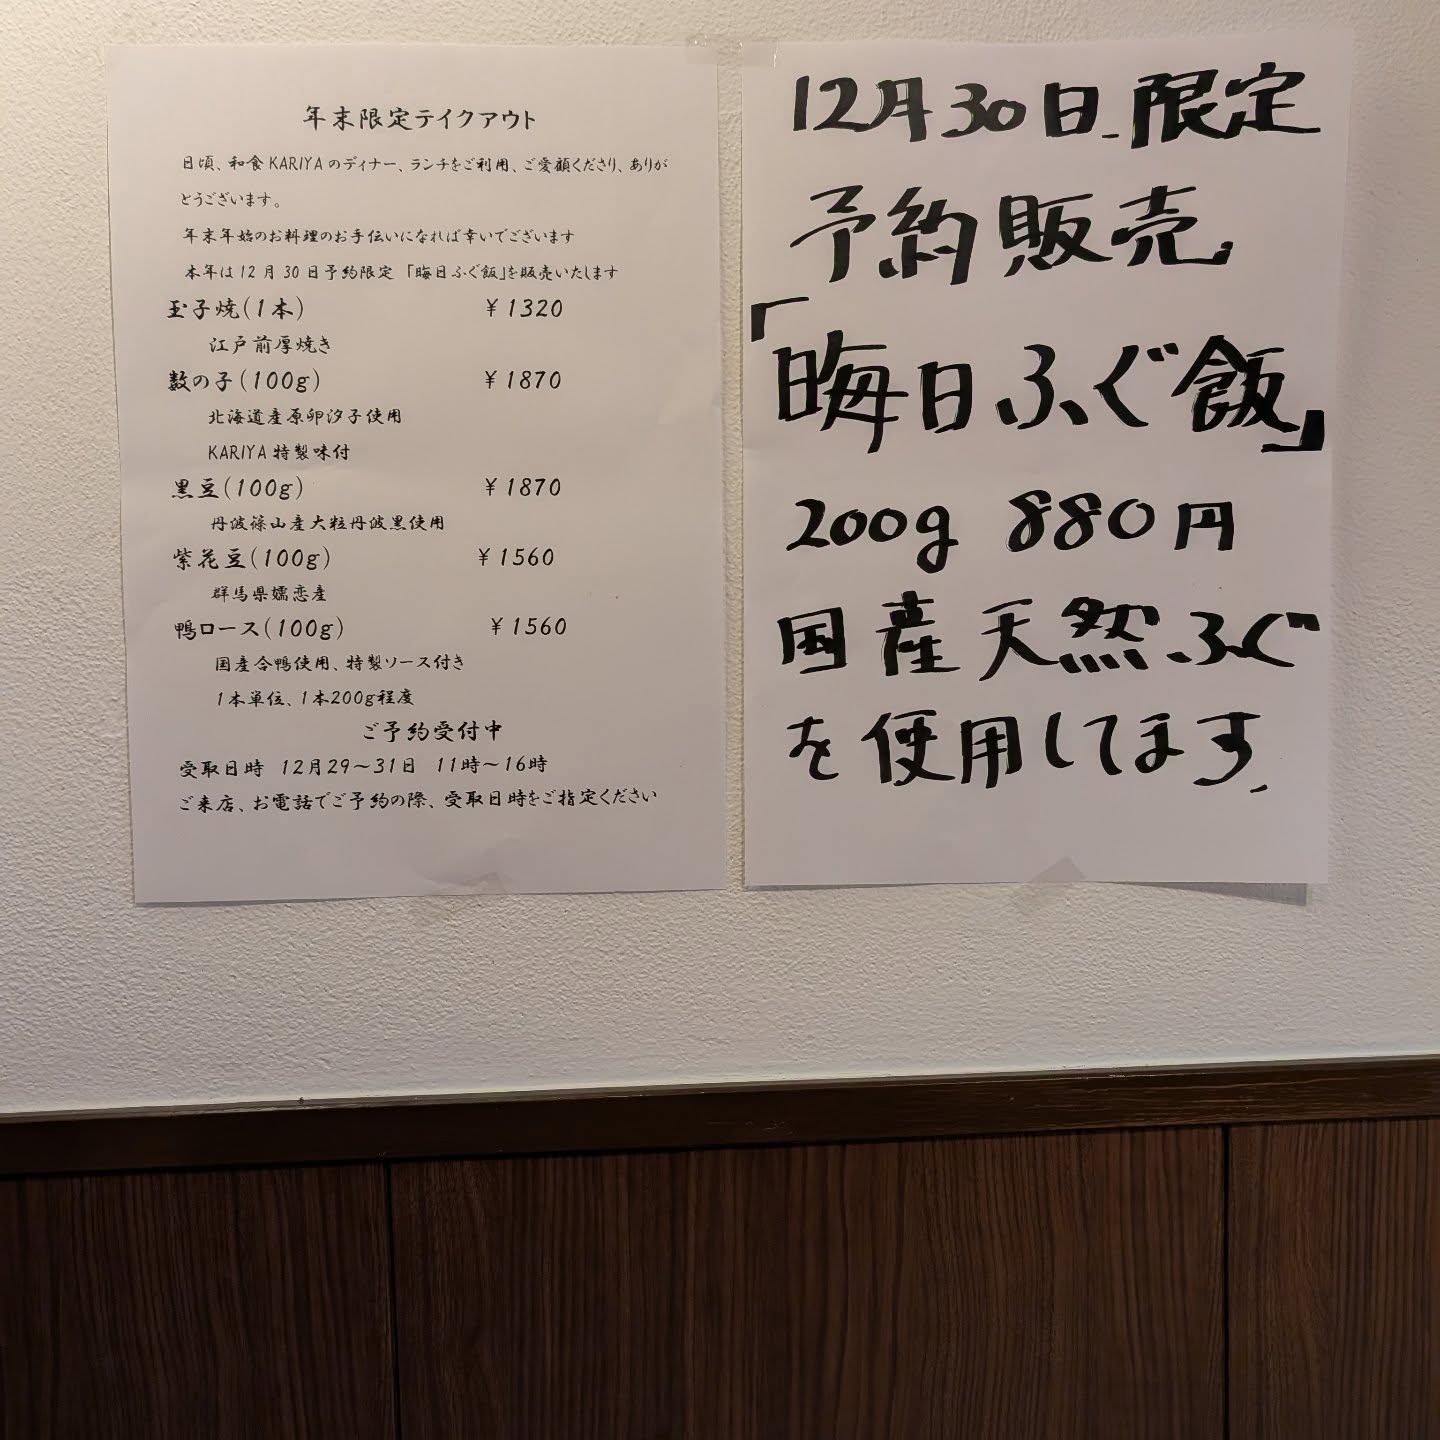 年末限定テイクアウト
日頃、和食KARIYAのディナー、ランチをご利用、ご愛顧くださり、ありが
とうございます。
年末年始のお料理のお手伝いになれば幸いでございます
本年は12月30日予約限定「晦日ふぐ飯」を販売いたします
玉子焼(1本) ￥1320
江戸前厚焼き
数の子(100g) ￥1870
北海道産原卵汐子使用
KARIYA特製味付
黒豆(100g) ￥1870
丹波篠山産大粒丹波黒使用
紫花豆(100g) ￥1560
群馬県嬬恋産
鴨ロース(100g) ￥1560
国産合鴨使用、特製ソース付き
1本単位、1本200g程度
ご予約受付中
受取日時 12月29～31日 11時～16時
ご来店、お電話でご予約の際、受取日時をご指定ください
12月30日限定
予約販売
「晦日ふぐ飯」
200g 880円
国産天然ふぐ
を使用してます